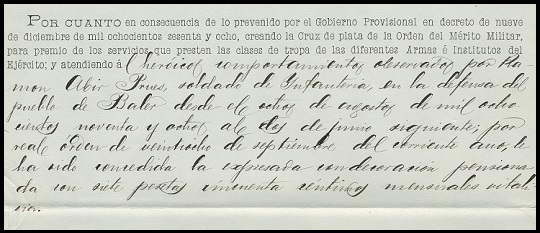 POR CUANTO en consecuencia de lo prevenido por el Gobierno Provisional en decreto de nueve
de diciembre de mil ochocientos sesenta y ocho, creando la Cruz de plata de la Orden del Mérito Militar,
para premio de los servicios que presten las clases de tropa de las diferentes Armas é Institutos del
Ejército; y atendiendo á l heróico comportamiento observado por Ra-
mon Abir Prues, soldado de Infantería, en la defensa del
pueblo de Baler desde el ocho de agosto de mil ocho-
cientos noventa y ocho al dos de junio siguiente; por
real órden de veintiocho de septiembre del corriente año, le
ha sido concedida la expresada condecoración pensiona
da con siete pesetas cincuenta céntimos mensuales vitali-
cia.